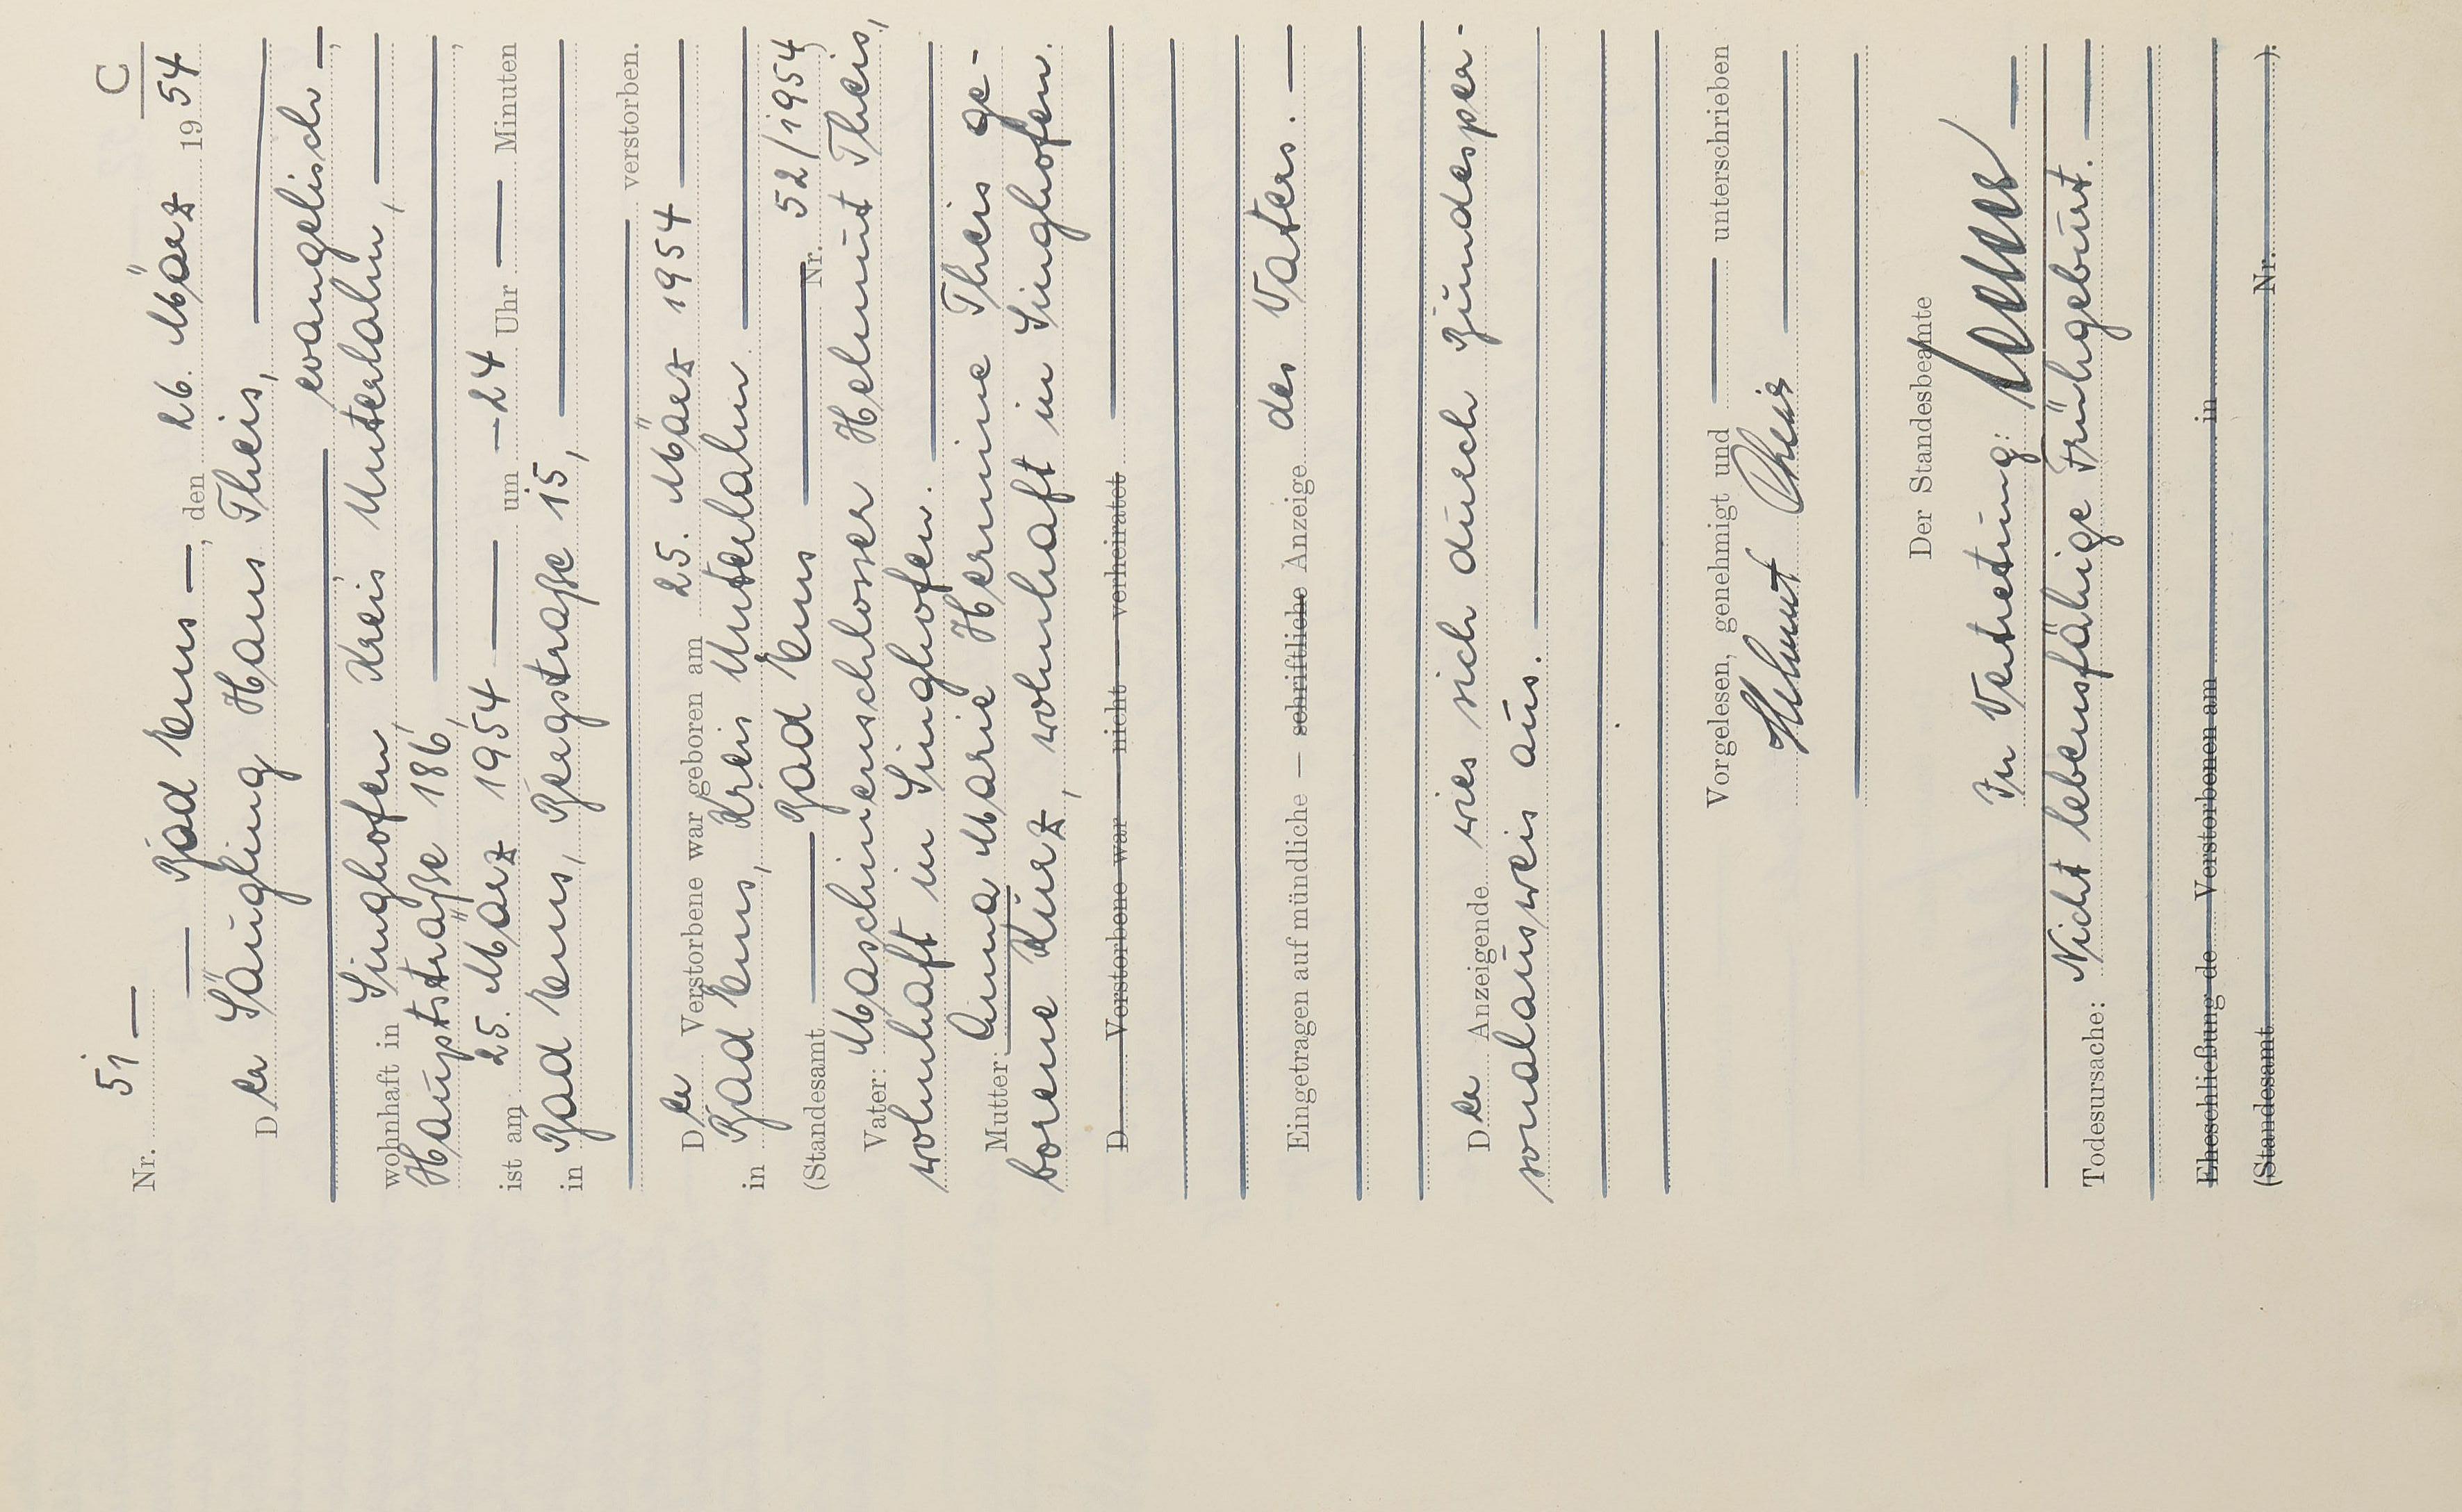 C
Nr. 51 —
— Bad Ems —, den 26. März 1954
Der Säugling Hans Theis,
evangelisch —,
wohnhaft in Singhofen, Kreis Unterlahn,
Hauptstraße 186,
ist am 25. März 1954 — um — 24 Uhr — Minuten
in Bad Ems, Bergstraße 15,
verstorben.
Der Verstorbene war geboren am 25. März 1954
in Bad Ems, Kreis Unterlahn
(Standesamt — Bad Ems — Nr. 52/1954)
Vater: Maschinenschlosser Helmut Theis,
wohnhaft in Singhofen.
Mutter: Anna Marie Hermine Theis ge-
borene Kurz, wohnhaft in Singhofen.
D Verstorbene war — nicht — verheiratet
Eingetragen auf mündliche — schriftliche Anzeige des Vaters. —
Der Anzeigende wies sich durch Bundesper-
sonalausweis aus.
Vorgelesen, genehmigt und — unterschrieben
Helmut Theis
Der Standesbeamte
In Vertretung:
Todesursache: Nicht lebensfähige Frühgeburt. —
Eheschließung de Verstorbenen am in
(Standesamt Nr. ).